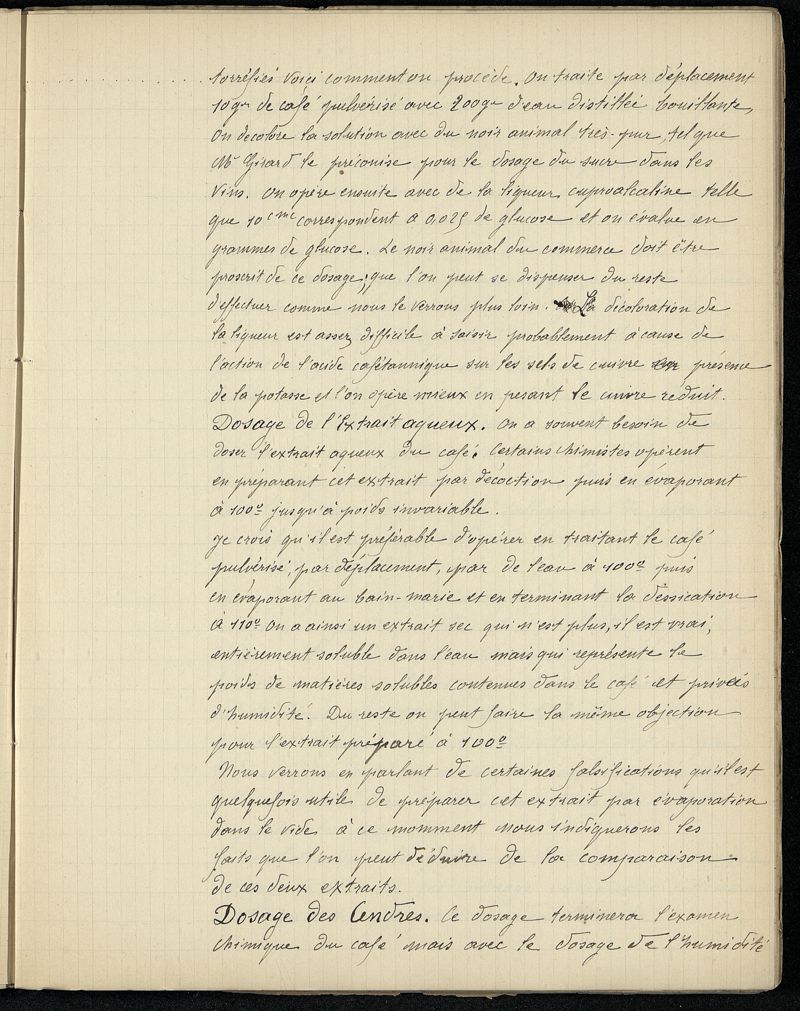 torréfiés voici comment on procède. On traite par déplacement
10gr de café pulvérisé avec 200gr d'eau distillée bouillante,
On décolore la solution avec du noir animal très-pur, tel que
Mr Girard le préconise pour le dosage du sucre dans les
vins. On opère ensuite avec de la liqueur cuproalcaline telle
que 10 cmc correspondent à 0,025 de glucose et on évalue en
grammes de glucose. Le noir animal du commerce doit être
proscrit de ce dosage, que l'on peut se dispenser du reste
d'effectuer comme nous le verrons plus loin. La décoloration de
la liqueur est assez difficile à saisir probablement à cause de
l'action de l'acide cafétannique sur les sels de cuivre en présence
de la potasse et l'on opère mieux en pesant le cuivre réduit.
Dosage de l'Extrait aqueux. On a souvent besoin de
doser l'extrait aqueux du café. Certains chimistes opèrent
en préparant cet extrait par décoction puis en évaporant
à 100° jusqu'à poids invariable.
Je crois qu'il est préférable d'opérer en traitant le café
pulvérisé, par déplacement, par de l'eau à 100° puis
en évaporant au bain-marie et en terminant la déssication
à 110° On a ainsi un extrait sec qui n'est plus, il est vrai,
entièrement soluble dans l'eau mais qui représente le
poids de matières solubles contenues dans le café et privées
d'humidité. Du reste on peut faire la même objection
pour l'extrait préparé à 100°
Nous verrons en parlant de certaines falsifications qu'il est
quelquefois utile de préparer cet extrait par évaporation
dans le vide à ce momment nous indiquerons les
faits que l'on peut déduire de la comparaison
de ces deux extraits.
Dosage des Cendres. Ce dosage terminera l'examen
chimique du café mais avec le dosage de l'humidité